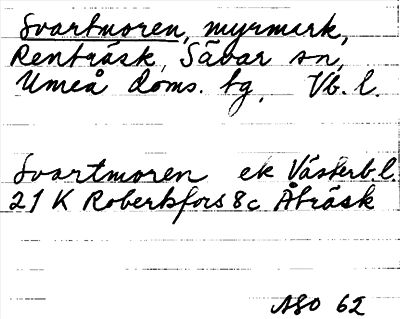 Svartmoren, myrmark,
Renträsk, Sävar sn,
Umeå doms. tg, Vb. l.
Svartmoren ek Västerb.l.
21 K Robertsfors 8c Åträsk
ASO 62